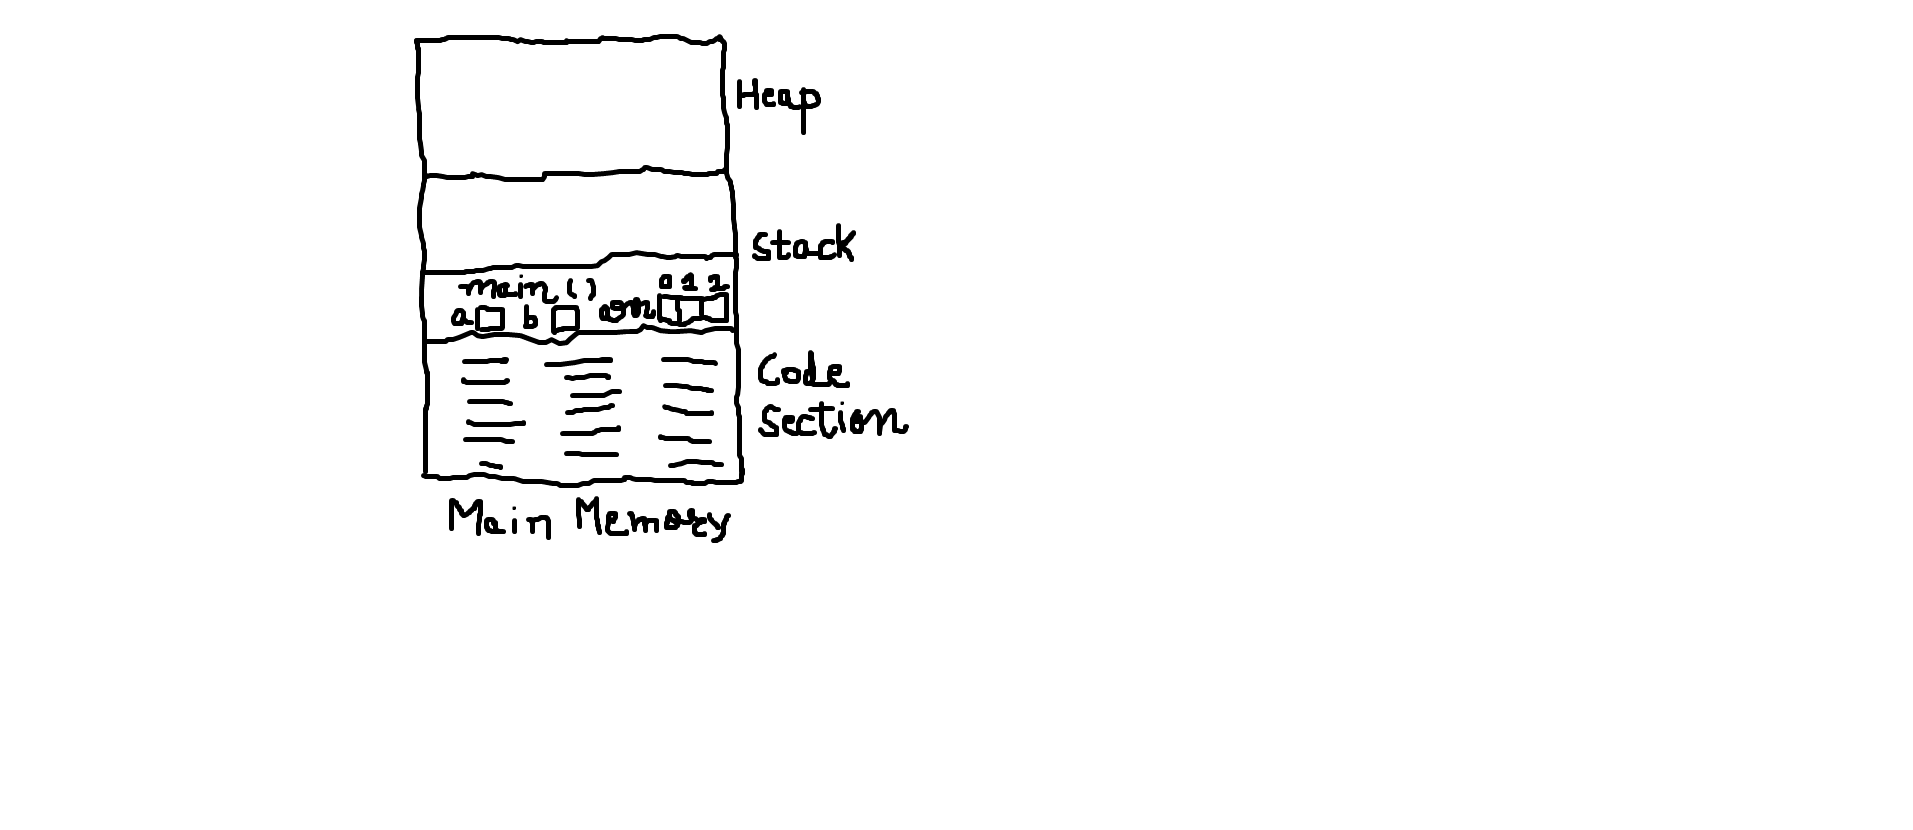 Heap
Stack
main ()
0 1 2
a b arr
Code
Section
Main Memory